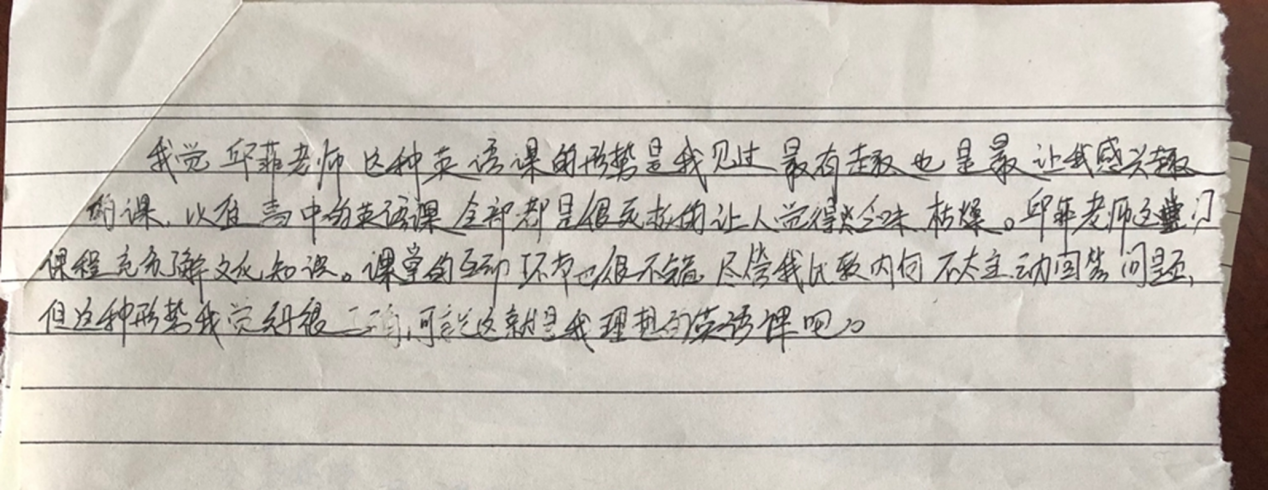 我觉邱菲老师这种英语课的形势是我见过最有趣也是最让我感兴趣
的课，以往高中的英语课全部都是很死板的让人觉得乏味枯燥。邱菲老师这门
课程充分了解文化知识。课堂的互动环节也很不错，尽管我比较内向不太主动回答问题，
但这种形势我觉得很，可说这就是我理想的英语课吧。